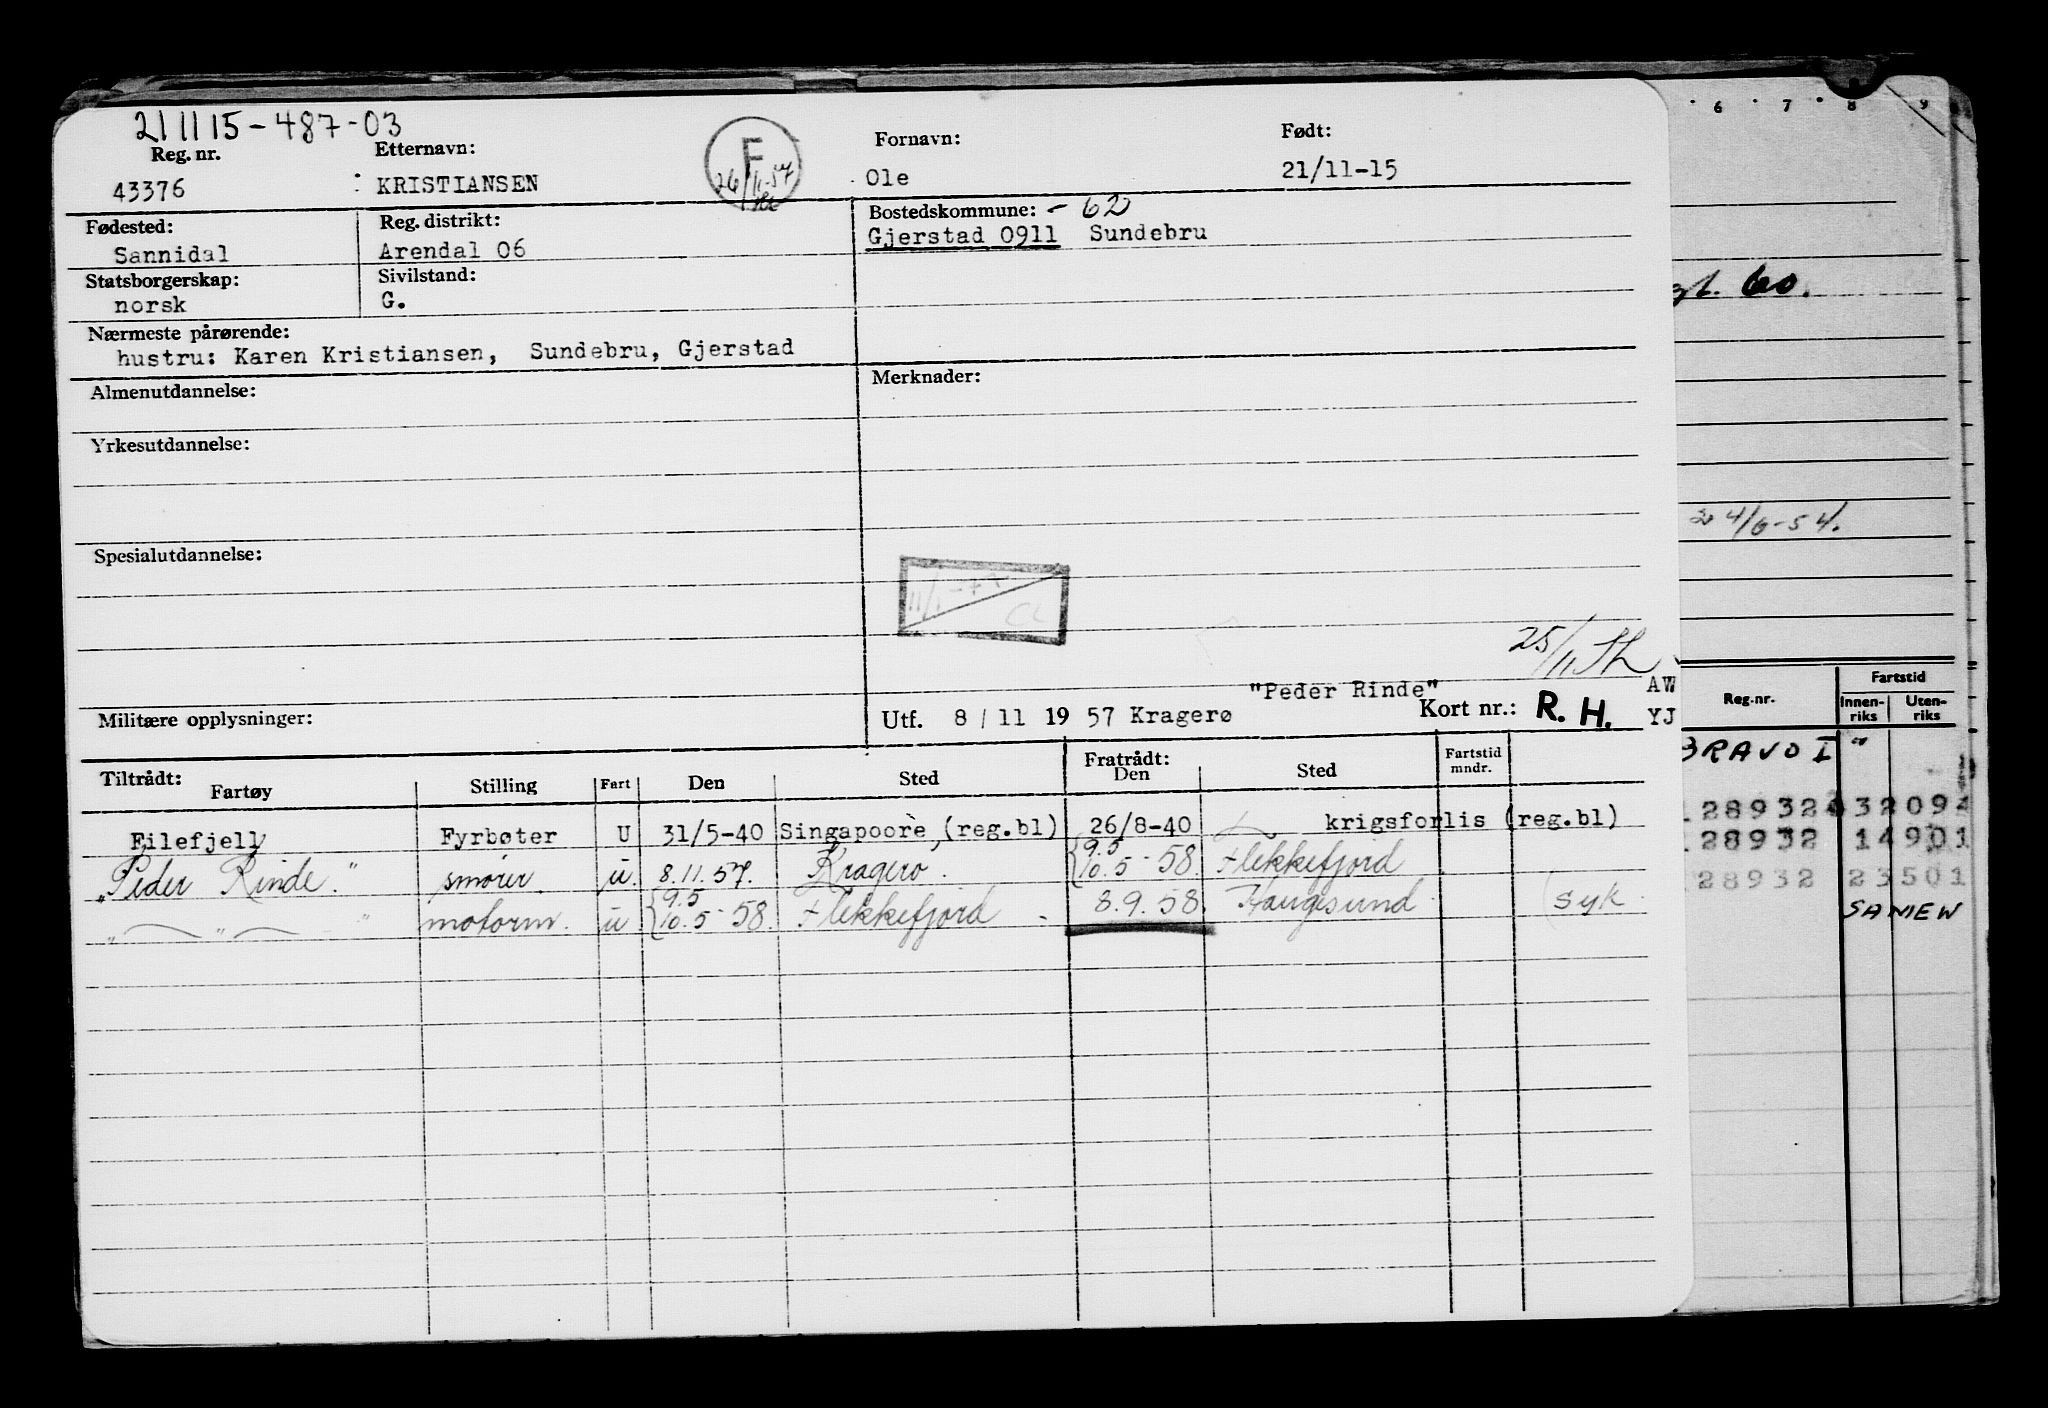 211115-487-03
Reg. nr. Etternavn: Fornavn: Født:
43376 KRISTIANSEN F 26/11-57 Ole 21/11-15
Fødested: Reg. distrikt: Bostedskommune: -62
Sannidal Arendal 06 Gjerstad 0911 Sundebru
Statsborgerskap: Sivilstand:
norsk G.
Nærmeste pårørende:
hustru: Karen Kristiansen, Sundebru, Gjerstad
Almenutdannelse: Merknader:
Yrkesutdannelse:
Spesialutdannelse:
11/1-77 CL
25/11
"Peder Rinde" AW
Militære opplysninger: Utf. 8 / 11 19 57 Kragerø Kort nr.: R. H. YJ
Tiltrådt: Fratrådt: Fartstid
Fartøy Stilling Fart Den Sted Den Sted mndr.
Filefjell Fyrbøter U 31/5-40 Singapoore, (reg.bl) 26/8-40 krigsforlis (reg.bl)
"Peder Rinde." smører. u. 8.11.57. Kragerø. {9.5 10.5-58. Flekkefjord
" " " motorm. u {9.5 10.5-58. Flekkefjord 8.9.58. Haugesund (syk
6 7 8 9
60.
24/6-54.
Reg.nr. Fartstid
Innenriks Utenriks
BRAVO I "
289324 32094
28932 14901
28932 23501
SANIEW